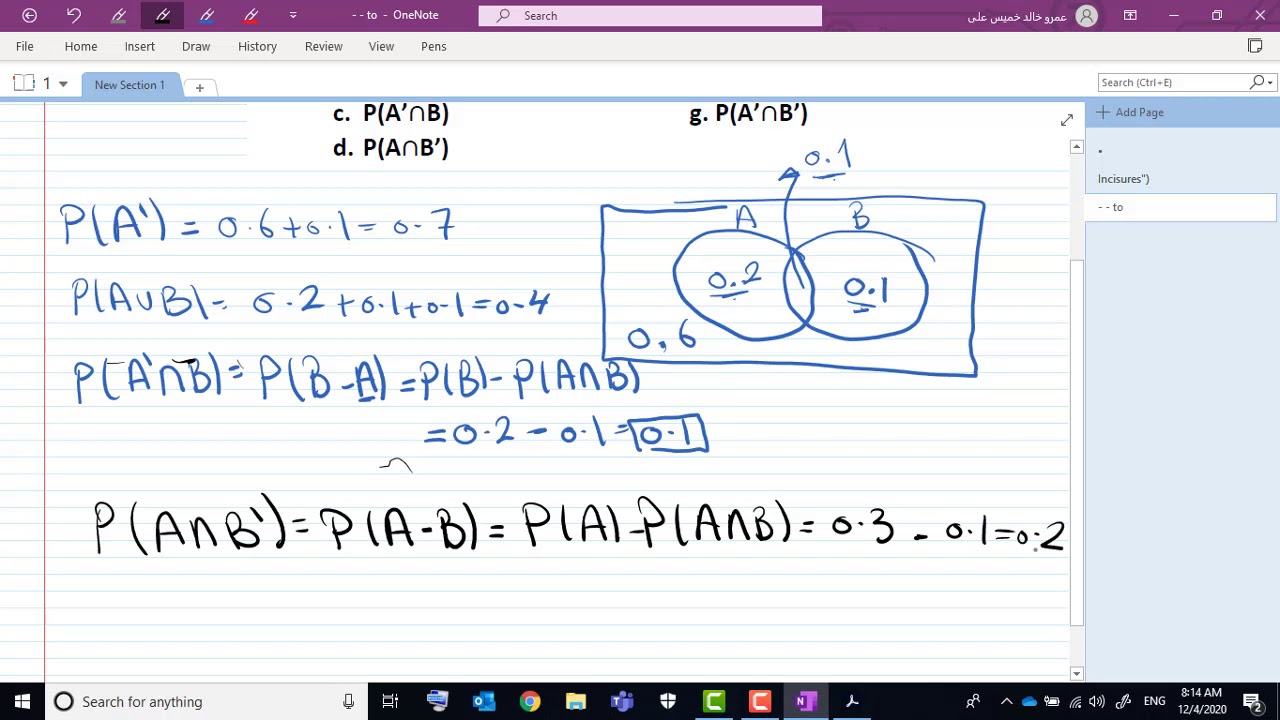 - - to - OneNote
Search
عمرو خالد خميس على
File Home Insert Draw History Review View Pens
1 New Section 1 +
Search (Ctrl+E)
Add Page
Incisures")
- - to
c. P(A’∩B)
g. P(A’∩B’)
d. P(A∩B’)
0.1
A B
0.2 0.1
0.6
P(A') = 0.6+0.1 = 0.7
P(A∪B) = 0.2+0.1+0.1=0.4
P(A'∩B) = P(B-A) = P(B) - P(A∩B)
= 0.2 - 0.1 = 0.1
P(A∩B') = P(A-B) = P(A) - P(A∩B) = 0.3 - 0.1=0.2
Search for anything
ENG
8:14 AM
12/4/2020
2